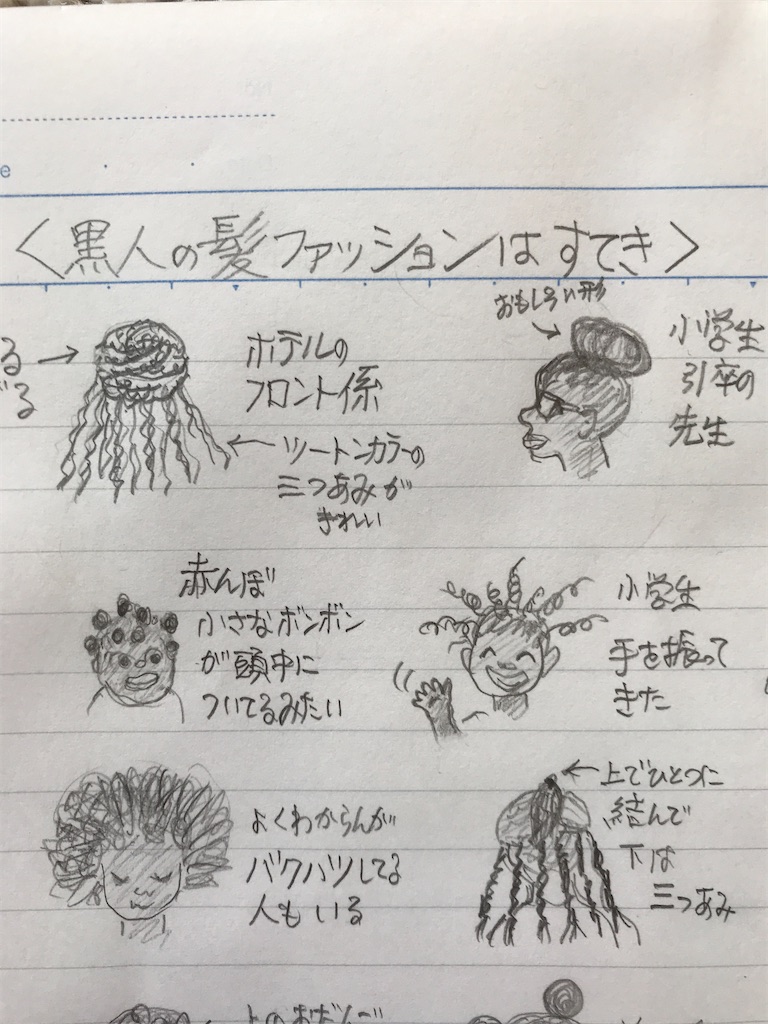 e
〈黒人の髪ファッションはすてき〉
る
ホテルの
フロント係
ツートンカラーの
三つあみが
きれい
おもしろい形
小学生
引卒の
先生
赤んぼ
小さなボンボン
が頭中に
ついてるみたい
小学生
手を振って
きた
よくわからんが
バクハツしてる
人もいる
上でひとつに
結んで
下は
三つあみ